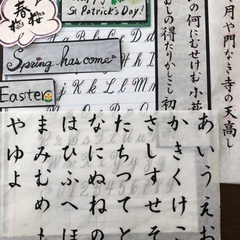 春
St Patrick's Day!
Spring has come
Easter
月や門なき寺の天高し
の何にむせけむ小花
むしの得たりかしこし初
あいうえお
かきくけこ
さしすせそ
たちつてと
なにぬねの
はひふへほ
まみむめも
やゆよ